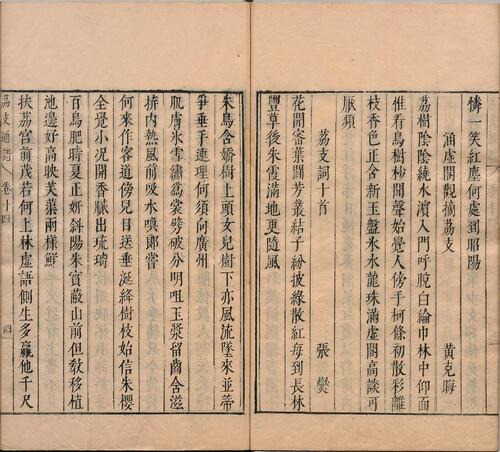 憐一笑紅塵何處到昭陽
涵虛閣觀摘荔支　黃克晦
荔樹陰陰繞水濱入門呼脫白綸巾林中仰面
惟看鳥樹杪聞聲始覺人傍手柯條初散彩離
枝香色正含新玉盤氷水龍珠滿虛閣高談可
厭頻
荔支詞十首　張燮
花開密葉鬪芳叢結子紛披緣散紅每到長林
豐草後朱霞滿地更隨風
朱鳥含嬌樹上頭女兒樹下亦風流墜來並蒂
爭垂手連理何須向廣州
肌膚氷雪縐為裳劈破分明咀玉漿留齒含滋
擠內熱風前吸水嗅郎嘗
何來作客道傍兒目送垂涎絳樹枝始信朱櫻
全覺小況開香膩出琉璃
百鳥肥時夏正妍斜陽朱實蔽山前但教移植
池邊好高映芙蕖兩樣鮮
扶荔宮前茂若何上林虛語側生多贏他千尺
荔支通譜　卷十四　四